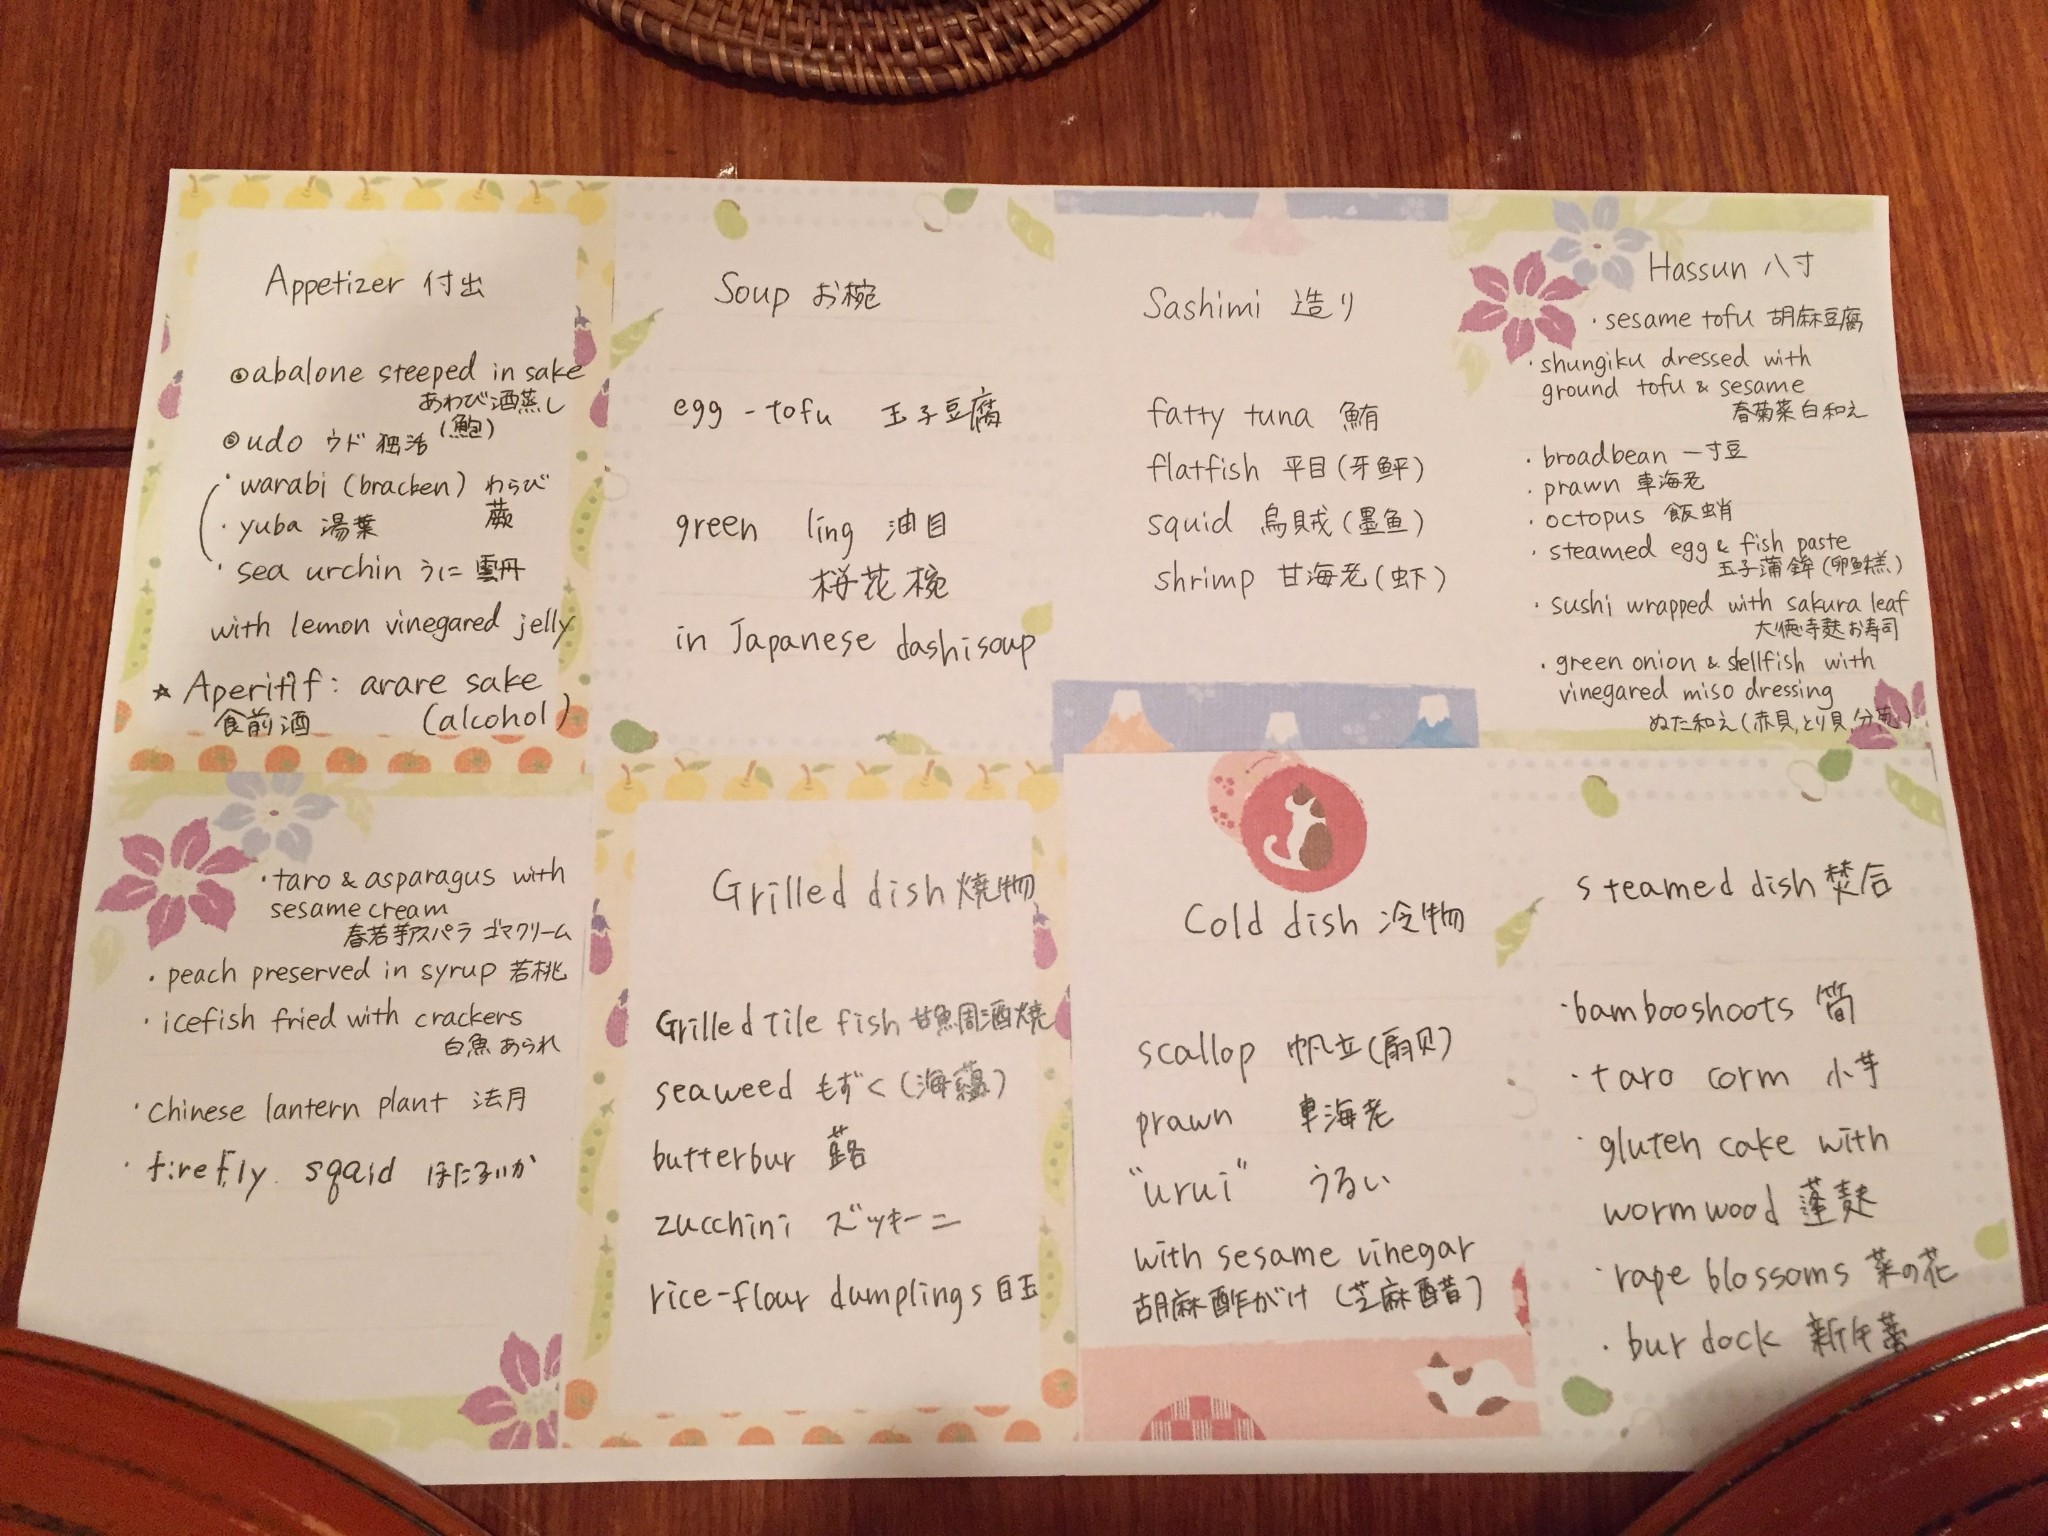 Appetizer 付出
abalone steeped in sake
あわび酒蒸し
(鮑)
udo ウド 独活
・warabi (bracken) わらび
蕨
・yuba 湯葉
・sea urchin うに 雲丹
with lemon vinegared jelly
☆ Aperitif: arare sake
食前酒 (alcohol)
Soup お椀
egg-tofu 玉子豆腐
green ling 油目
桜花椀
in Japanese dashi soup
Sashimi 造り
fatty tuna 鮪
flatfish 平目(牙鲆)
squid 烏賊(墨鱼)
shrimp 甘海老(虾)
Hassun 八寸
・sesame tofu 胡麻豆腐
・shungiku dressed with
ground tofu & sesame
春菊菜白和え
・broadbean 一寸豆
・prawn 車海老
・octopus 飯蛸
・steamed egg & fish paste
玉子蒲鉾(卵鱼糕)
・sushi wrapped with sakura leaf
大徳寺麩お寿司
・green onion & shellfish with
vinegared miso dressing
ぬた和え(赤貝,とり貝,分葱)
・taro & asparagus with
sesame cream
春若芋アスパラ ゴマクリーム
・peach preserved in syrup 若桃
・icefish fried with crackers
白魚あられ
・chinese lantern plant 法月
・firefly squid ほたるいか
Grilled dish 焼物
Grilled tile fish 甘魚周酒焼
seaweed もずく(海蘊)
butterbur 蕗
zucchini ズッキーニ
rice-flour dumplings 白玉
Cold dish 冷物
scallop 帆立(扇贝)
prawn 車海老
"urui" うるい
with sesame vinegar
胡麻酢がけ (芝麻醋)
steamed dish 焚合
・bambooshoots 筍
・taro corm 小芋
・gluten cake with
wormwood 蓬麩
・rape blossoms 菜の花
・burdock 新牛蒡